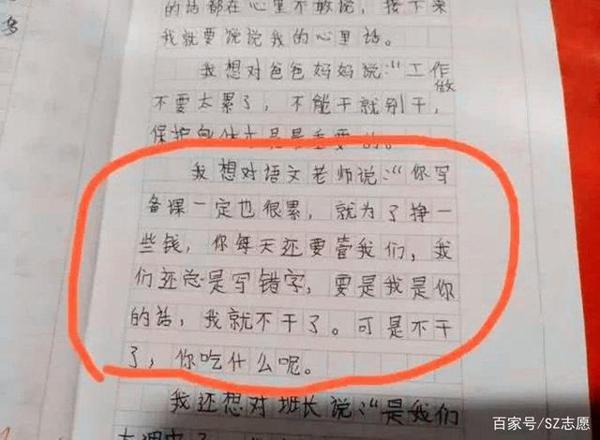 的话都在心里不敢说，接下来
我就要说说我的心里话。
我想对爸爸妈妈说：“工作做
不要太累了，不能干就别干，
保护身体才是最重要的。
我想对语文老师说：“你写
备课一定也很累，就为了挣一
些钱，你每天还要管我们，我
们还总是写错字，要是我是你
的话，我就不干了。可是不干
了，你吃什么呢。
我还想对班长说：“是我们
百家号/SZ志愿